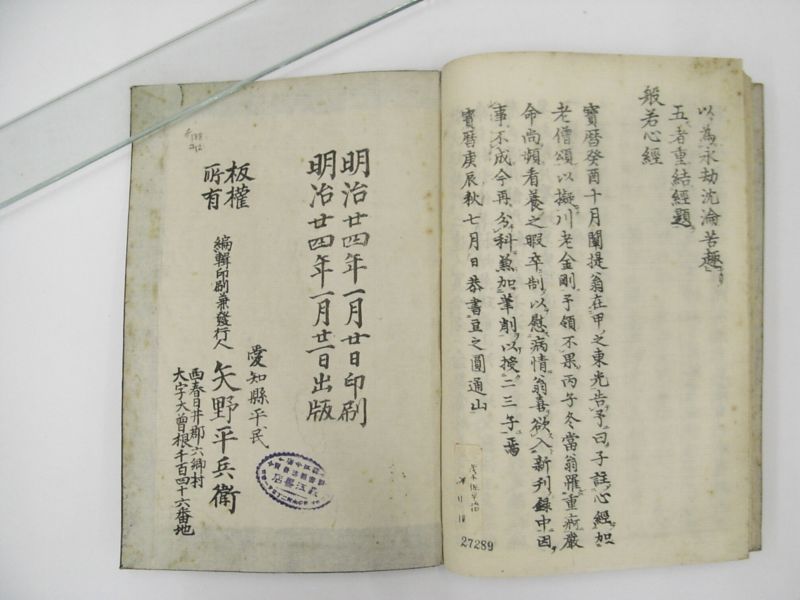 以為永劫沈淪苦趣
五者重結經題
般若心經
寶暦癸酉十月闡提翁在甲之東光告予曰子註心經加
老僧頌以擬川老金剛予領不果丙子冬當翁罹重痾嚴
命尚頻看養之暇卒制以慰病情翁喜欲入新刊録中因
事不成今再分科兼加筆削以授二三子焉
寶暦庚辰秋七月日恭書豆之圓通山
27289
明治廿四年一月廿日印刷
明治廿四年一月廿一日出版
板權
所有
愛知縣平民
編輯印刷兼發行人 矢野平兵衛
西春日井郡六郷村
大字大曽根千百四十六番地